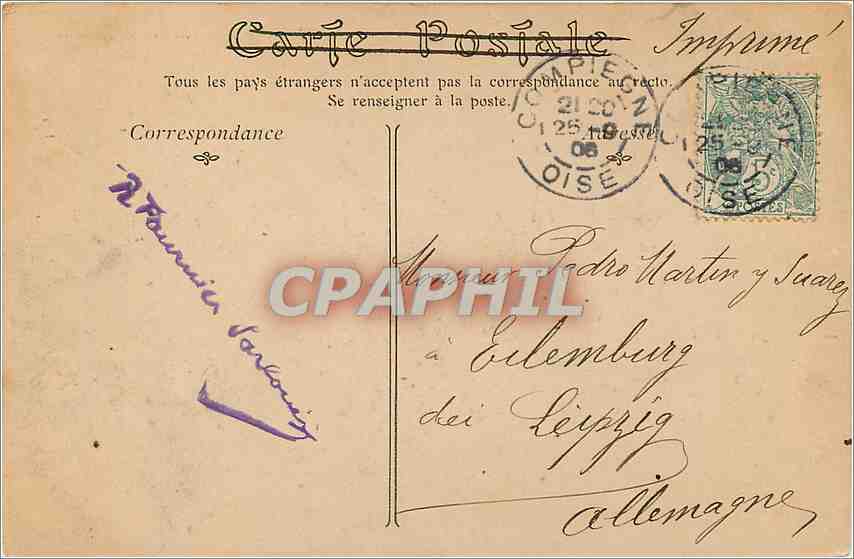 Carte Postale
Imprimé
Tous les pays étrangers n'acceptent pas la correspondance au recto.
Se renseigner à la poste.
Correspondance
Adresse
COMPIEGNE
OISE
R Fournier Sarlovèze
Monsieur Pedro Martin y Suarez
à Eilemburg
bei Leipzig
Allemagne
CPAPHIL